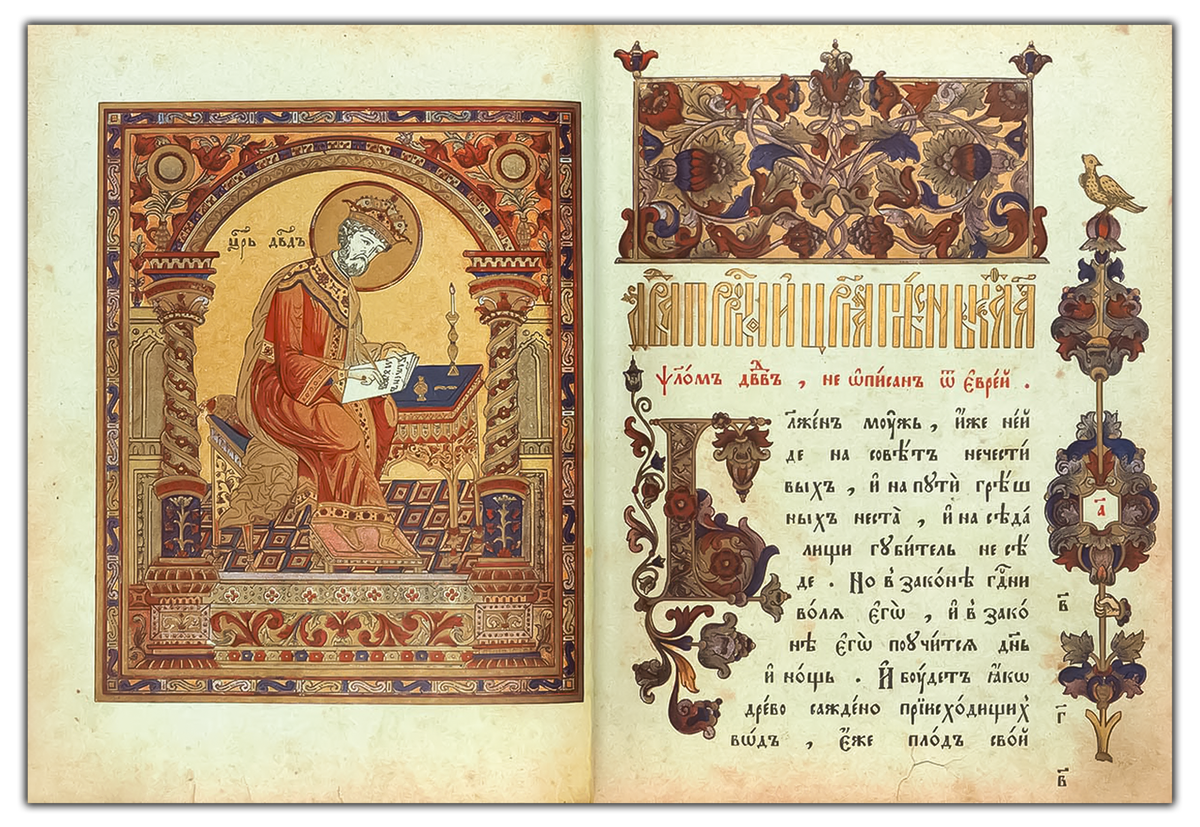 цр҃ь дв҃дъ
ѱало́мъ дв҃дв , не ѡ҆пи́санъ ѿ є҆врє́й .
л҃же́нъ мꙋ́жъ , и҆́же не и҆
де на совѣ́тъ нечести́
выхъ , и҆ на пꙋти́ грѣ́ш
ныхъ неста̀ , и҆ на сѣда́
лищи гꙋби́тель не сѣ́
де . Но в̾ зако́нѣ гдⷭ҇ни
во́лѧ є҆гѡ̀ , и҆ в̾ зако́
нѣ є҆гѡ̀ поꙋчи́тсѧ дн҃ь
и҆ но́щь . И҆ бꙋ́детъ ꙗ҆́кѡ
дре́во сажде́но при и҆схо́дищихъ
во́дъ , є҆́же пло́дъ сво́й
а҃
в҃
г҃